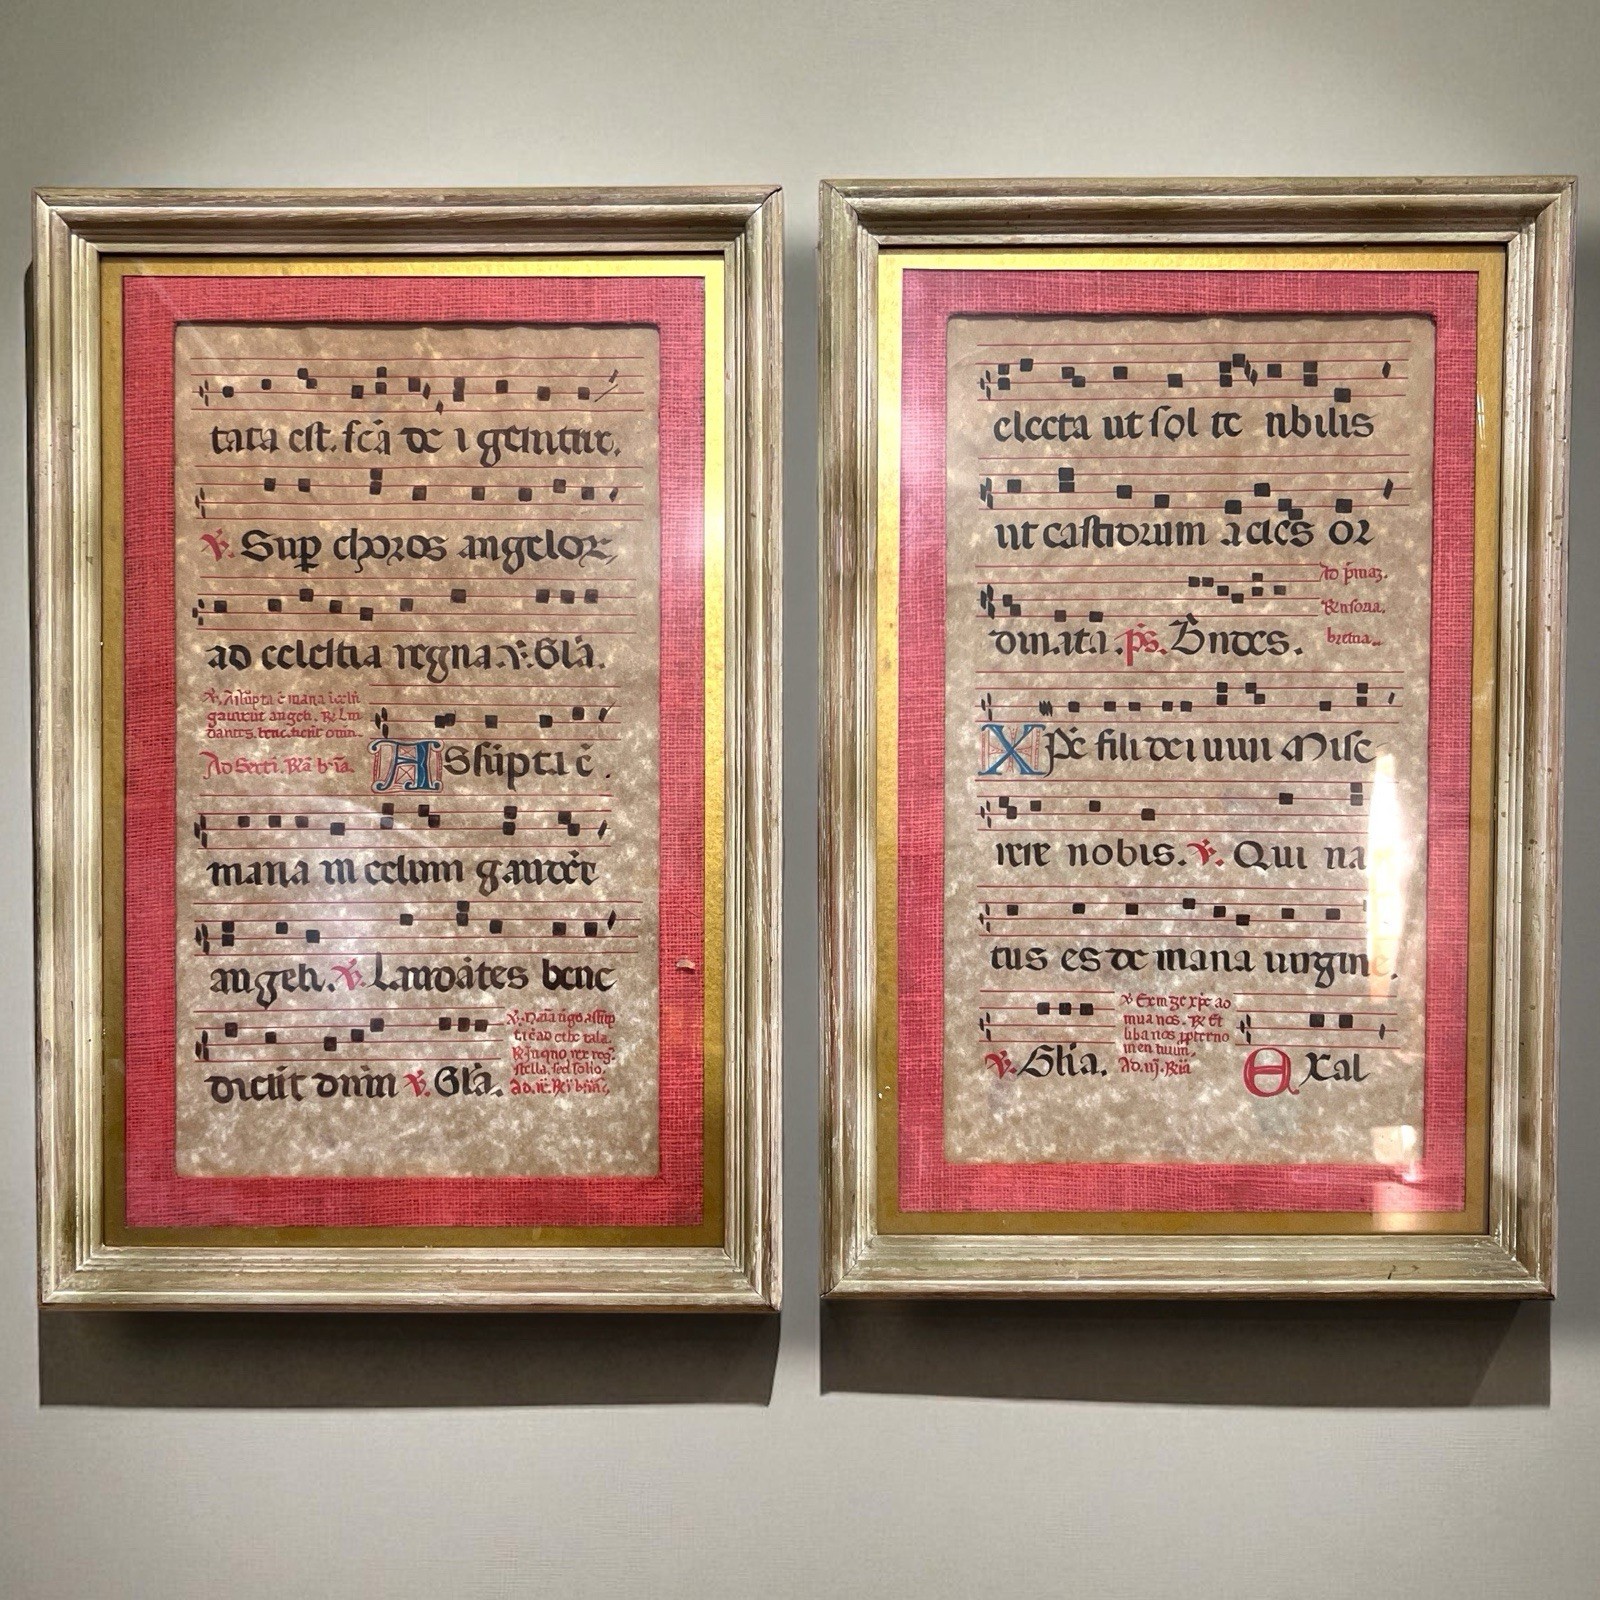 tata est. scā de i genitrix.
℣. Sup choros angeloꝝ,
ad celestia regna. ℣. Glā.
℣. Assūpta ē maria ī celū
gaudent angeli. ℟ Lau
dantes. benedicūt dnm.
Ad Sextā. ℟ā brīa.
ASsūpta ē.
maria in celum gaudēt
angeli. ℣. Laudātes bene
dicūt dnm ℣. Glā.
℣. Maria virgo assūp
ta ē ad ethe tala.
℟ In quo rex reg.
stella. sed solio.
electa ut sol te nbilis
ut castrorum acies or
dinata. ps. Bndes.
Ad pmaz.
Rinsoua.
breuia..
Xpē fili dei uiui Mise
rere nobis. ℣. Qui na
tus es de maria uirgine.
℣. Exurge xpē ad
iuua nos. ℟ Et
liba nos ppter no
men tuum,
Ad. iij. ℟iā
℣. Glia. EXal